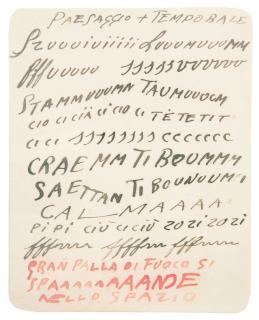 PAESAGGIO + TEMPORALE
SzuuuiviiiiiLuuumuuumm
fffuuuuu sssssvvvvvv
STAMMUUUMN TAUMUUUCM
CIO CI CIÀ CI CIO CI TÈTETIT
CI CI SSSSSSSS CCCCCCC
CRAEMM TI BOUMMM
SAETTAN TI BOUNUUM
CALMAAAA
PI PI CIÙ CI CIÙ ZOZI ZOZI
fffrrrr ffffrr fffrrrr
GRAN PALLA DI FUOCO SI
SPAAAAAAAANDE
NELLO SPAZIO